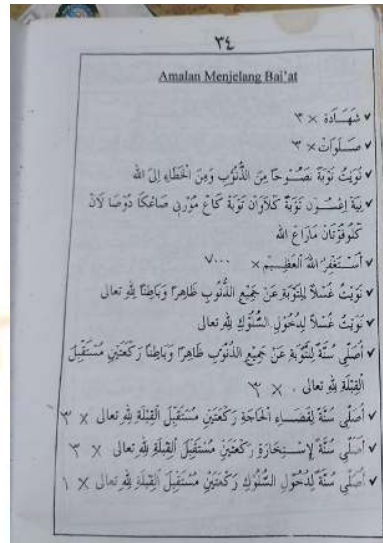 ٣٤
Amalan Menjelang Bai'at
✓ شَهَـادَة × ٣
✓ صَـلَوَاتْ × ٣
✓ نَوَيْتُ تَوْبَةً نَصُـوْحًا مِنَ الذُّنُوْبِ وَمِنَ الْخَطَاءِ إِلَى الله
✓ نِيَةْ إِغْسُـوْن تَوْبَةْ كَلَاوَانْ تَوْبَةْ كَاعْ مُوْرَنِي صَاعْكَا دَوْصَا لَانْ
مَارَاعْ الله
✓ أَسْـتَغْفِرُ اللهَ الْعَظِـيْمَ × ٧٠٠٠
✓ نَوَيْتُ غُسْلًا لِلتَّوْبَةِ عَنْ جَمِيْعِ الذُّنُوْبِ ظَاهِرًا وَبَاطِنًا لِلّٰهِ تعالى
✓ نَوَيْتُ غُسْلًا لِدُخُوْلِ السُّلُوْكِ لِلّٰهِ تعالى
✓ أُصَلِّي سُنَّةً لِلتَّوْبَةِ عَنْ جَمِيْعِ الذُّنُوْبِ ظَاهِرًا وَبَاطِنًا رَكْعَتَيْنِ مُسْتَقْبِلَ
الْقِبْلَةِ لِلّٰهِ تعالى . × ٣
✓ أُصَلِّي سُنَّةً لِقَضَـاءِ الْحَاجَةِ رَكْعَتَيْنِ مُسْتَقْبِلَ الْقِبْلَةِ لِلّٰهِ تعالى × ٣
✓ أُصَلِّي سُنَّةً لِإِسْـتِخَارَةِ رَكْعَتَيْنِ مُسْتَقْبِلَ الْقِبْلَةِ لِلّٰهِ تعالى × ٣
✓ أُصَلِّي سُنَّةً لِدُخُوْلِ السُّلُوْكِ رَكْعَتَيْنِ مُسْتَقْبِلَ الْقِبْلَةِ لِلّٰهِ تعالى × ١